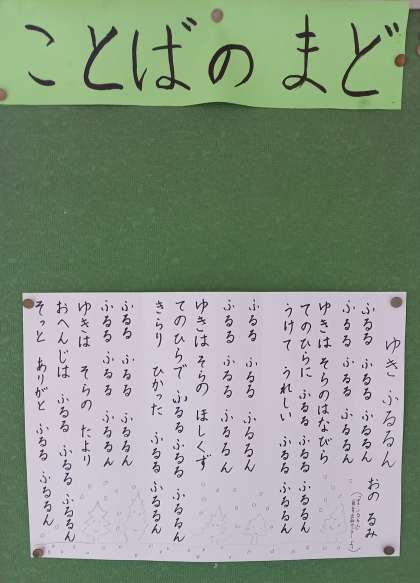 ことばのまど
ゆき ふるるん
おの るみ
ふるる ふるる ふるるん
ふるる ふるる ふるるん
ゆきは そらのはなびら
てのひらに ふるる ふるるん
うけて うれしい ふるる ふるるん
ふるる ふるる ふるるん
ふるる ふるる ふるるん
ゆきは そらの ほしくず
てのひらで ふるるふるる ふるるん
きらり ひかった ふるる ふるるん
ふるる ふるる ふるるん
ふるる ふるる ふるるん
ゆきは そらの たより
おへんじは ふるる ふるる ふるるん
そっと ありがと ふるる ふるるん